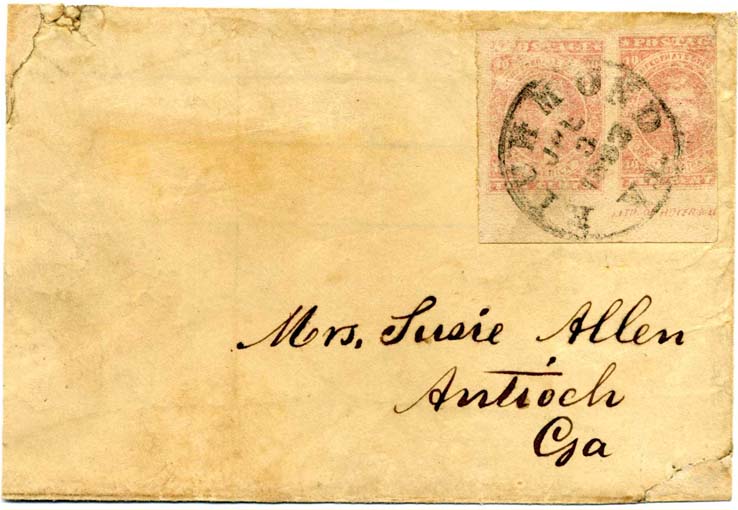 POSTAGE POSTAGE
RICHMOND VA.
3
1863
Mrs. Susie Allen
Antioch
Ga